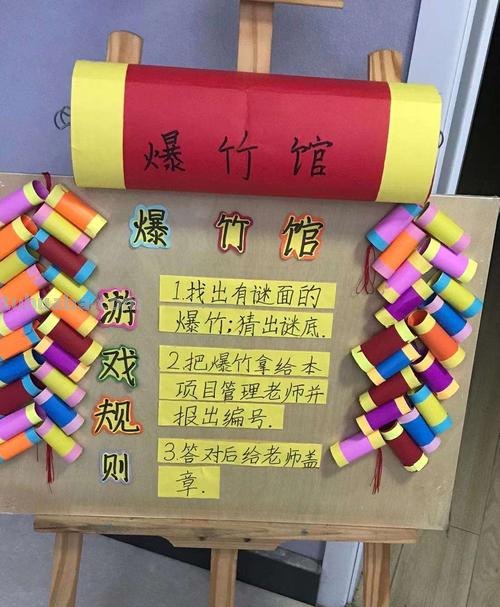 爆竹馆
爆竹馆
游戏规则
1.找出有谜面的
爆竹;猜出谜底.
2.把爆竹拿给本
项目管理老师并
报出编号.
3.答对后给老师盖
章.